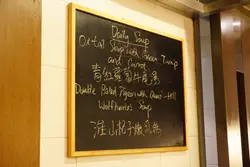 Daily Soup
Oxtail Soup with Green Turnip
and Carrot
青紅蘿蔔牛尾湯
Double Boiled Pigeon with Huai-Hill
Wolfberries Soup
淮山杞子燉乳鴿